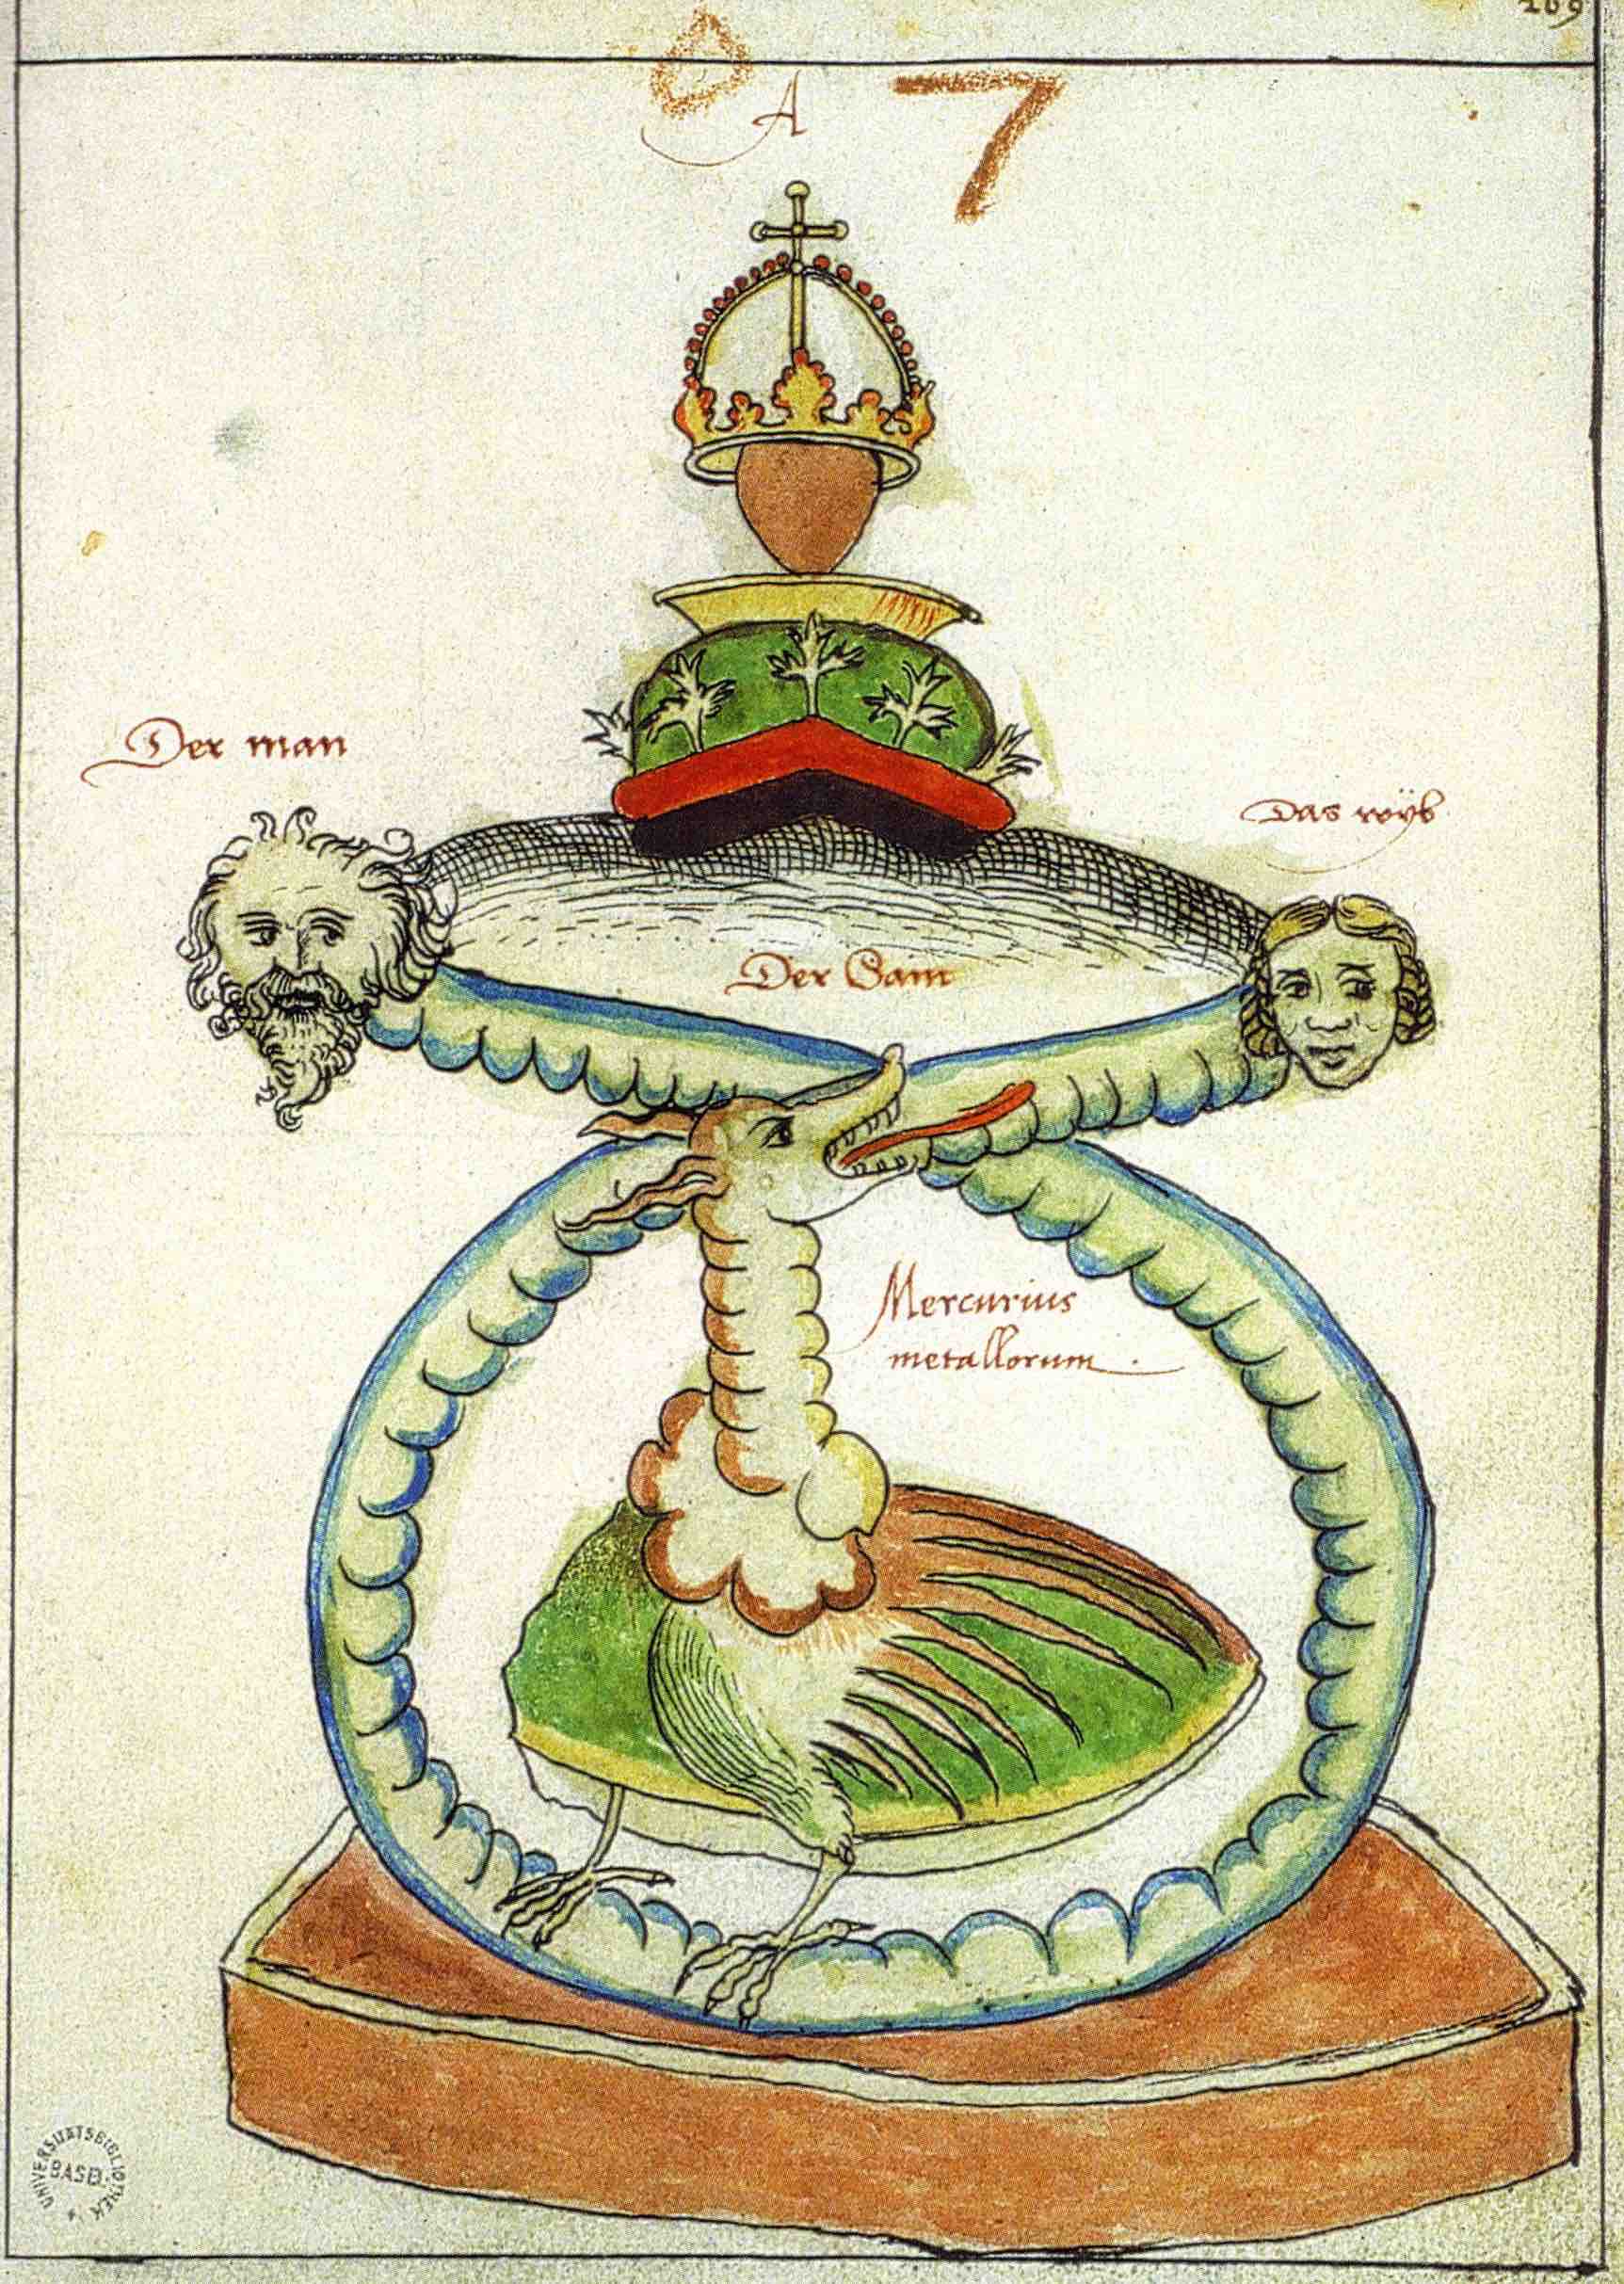 269
A 7
Der man
Das wyb
Der Sam
Mercurius
metallorum.
UNIVERSITATSBIBLIOTHEK
BASEL